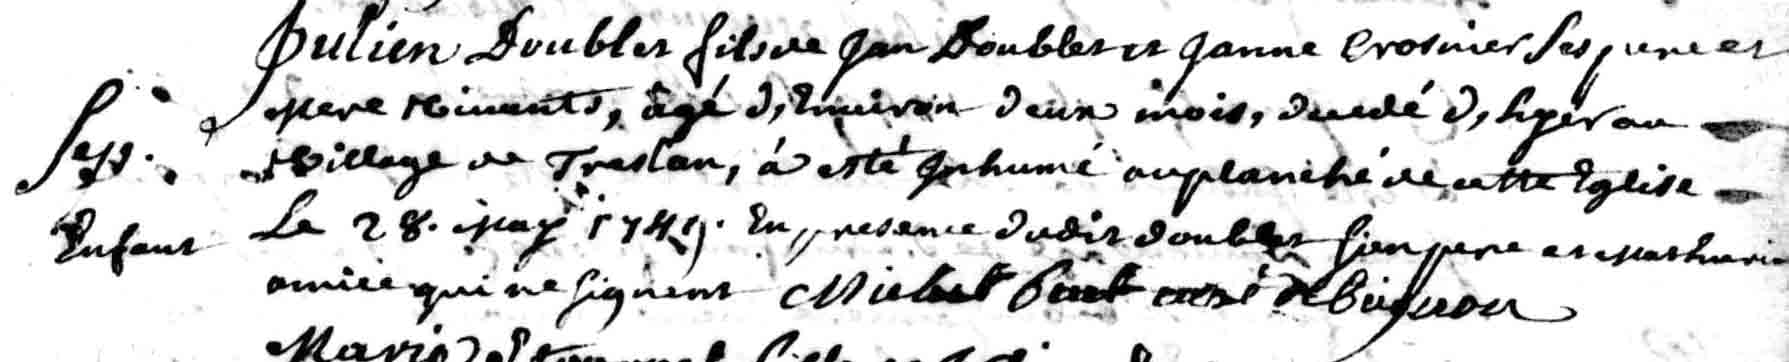 Julien Doublet fils de Jan Doublet et Janne Crosnier ses pere et
Mere vivants, âgé d, Environ deux mois, decedé d, hyer au
Sep.
Village de Treslan, á esté Inhumé au planché de cette Eglise
Enfant
Le 28. May 1749. En presence dudit doublet son pere et Mathurin
amice qui ne signent Michel curé de
Marie fille